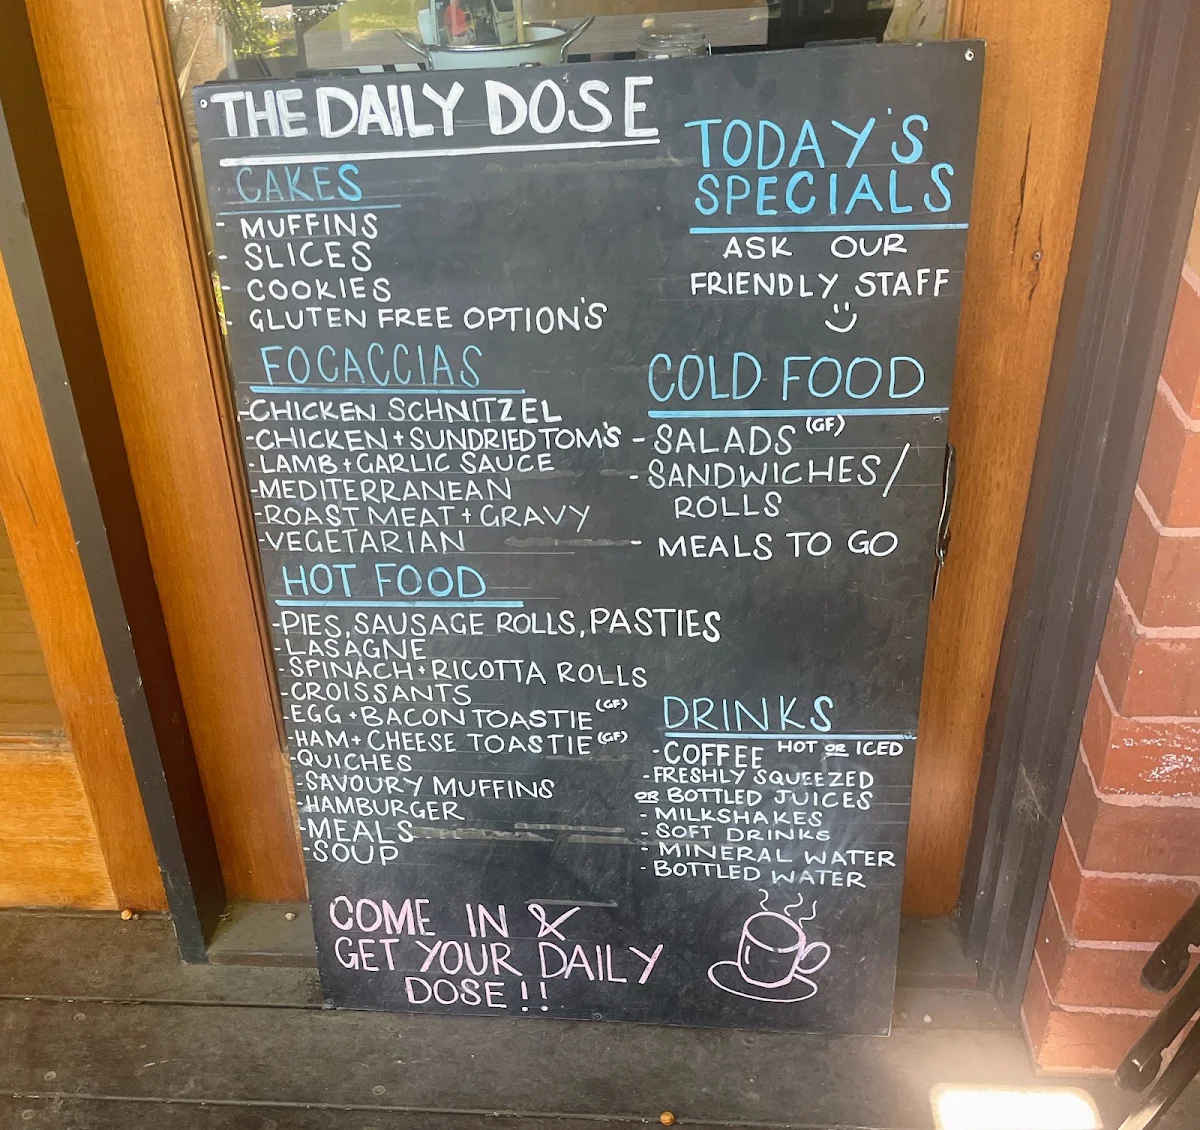 THE DAILY DOSE
CAKES
- MUFFINS
- SLICES
- COOKIES
- GLUTEN FREE OPTION'S
FOCACCIAS
-CHICKEN SCHNITZEL
-CHICKEN + SUNDRIED TOM'S
-LAMB + GARLIC SAUCE
-MEDITERRANEAN
-ROAST MEAT + GRAVY
-VEGETARIAN
HOT FOOD
-PIES, SAUSAGE ROLLS, PASTIES
-LASAGNE
-SPINACH + RICOTTA ROLLS
-CROISSANTS
-EGG + BACON TOASTIE (GF)
-HAM + CHEESE TOASTIE (GF)
-QUICHES
-SAVOURY MUFFINS
-HAMBURGER
-MEALS
-SOUP
COME IN &
GET YOUR DAILY
DOSE!!
TODAY'S
SPECIALS
ASK OUR
FRIENDLY STAFF
COLD FOOD
- SALADS (GF)
- SANDWICHES/
ROLLS
- MEALS TO GO
DRINKS
-COFFEE HOT OR ICED
-FRESHLY SQUEEZED
OR BOTTLED JUICES
- MILKSHAKES
- SOFT DRINKS
- MINERAL WATER
- BOTTLED WATER